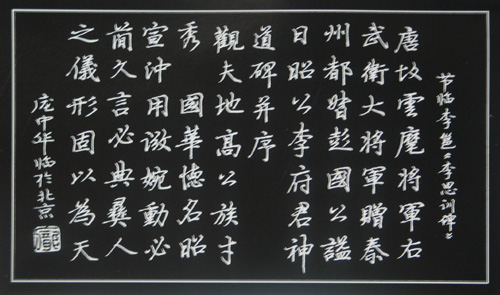 节临李邕《李思训碑》
唐故雲麾將軍右
武衛大將軍贈秦
州都督彭國公謚
曰昭公李府君神
道碑并序
觀夫地高公族才
秀 國華德名昭
宣沖用微婉動必
簡久言必典彝人
之儀形固以為天
庞中华临於北京